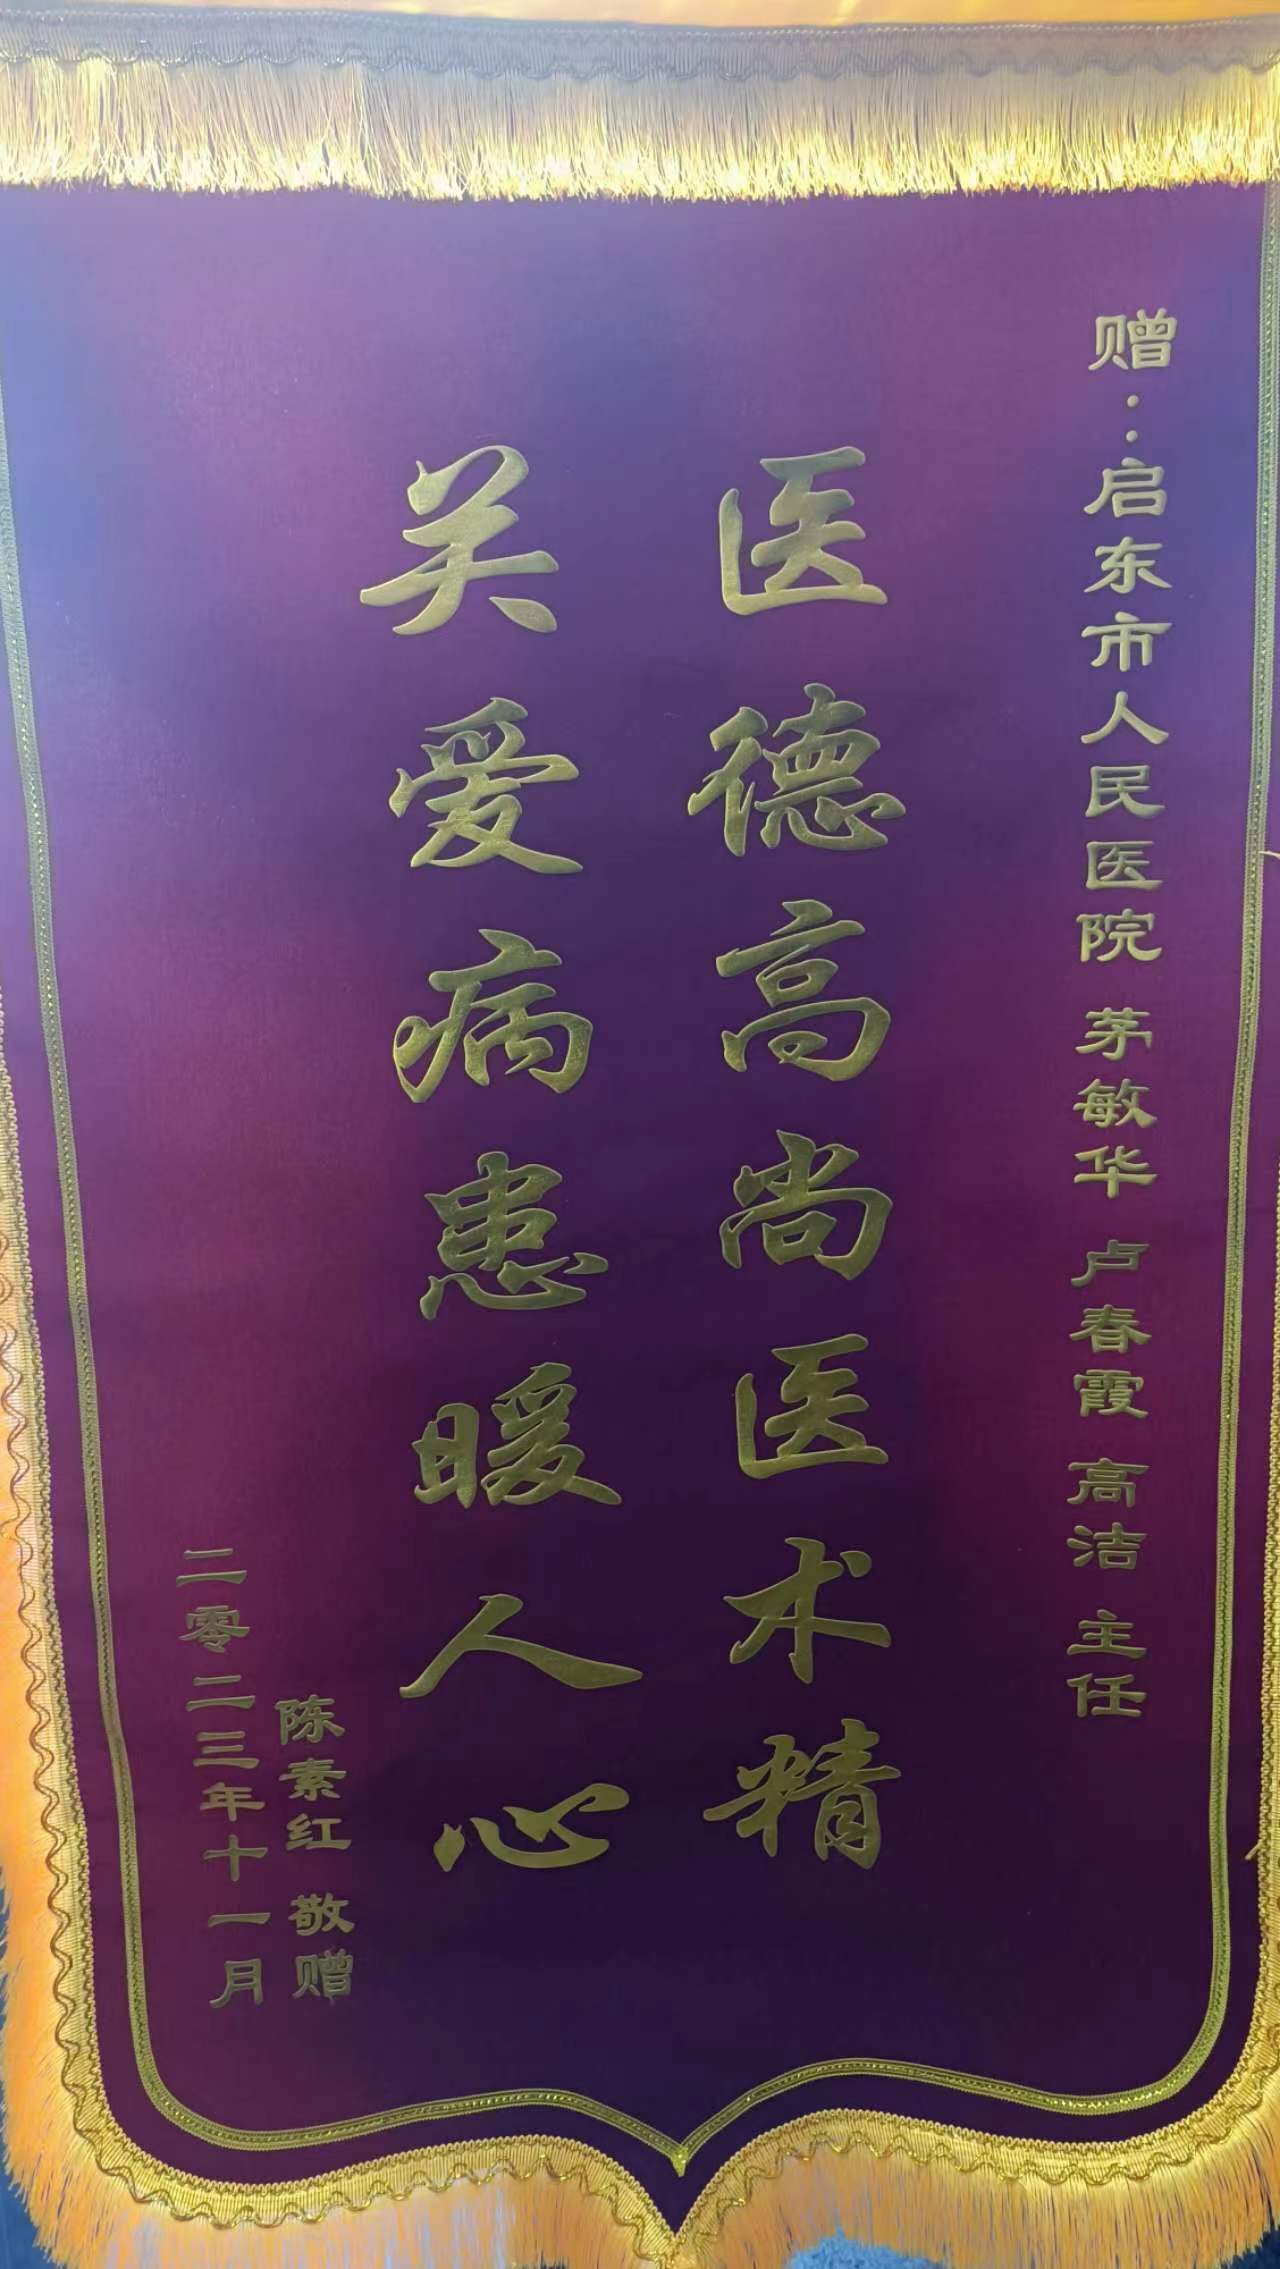 赠：启东市人民医院 茅敏华 卢春霞 高洁 主任
医德高尚医术精
关爱病患暖人心
陈素红 敬赠
二零二三年十一月